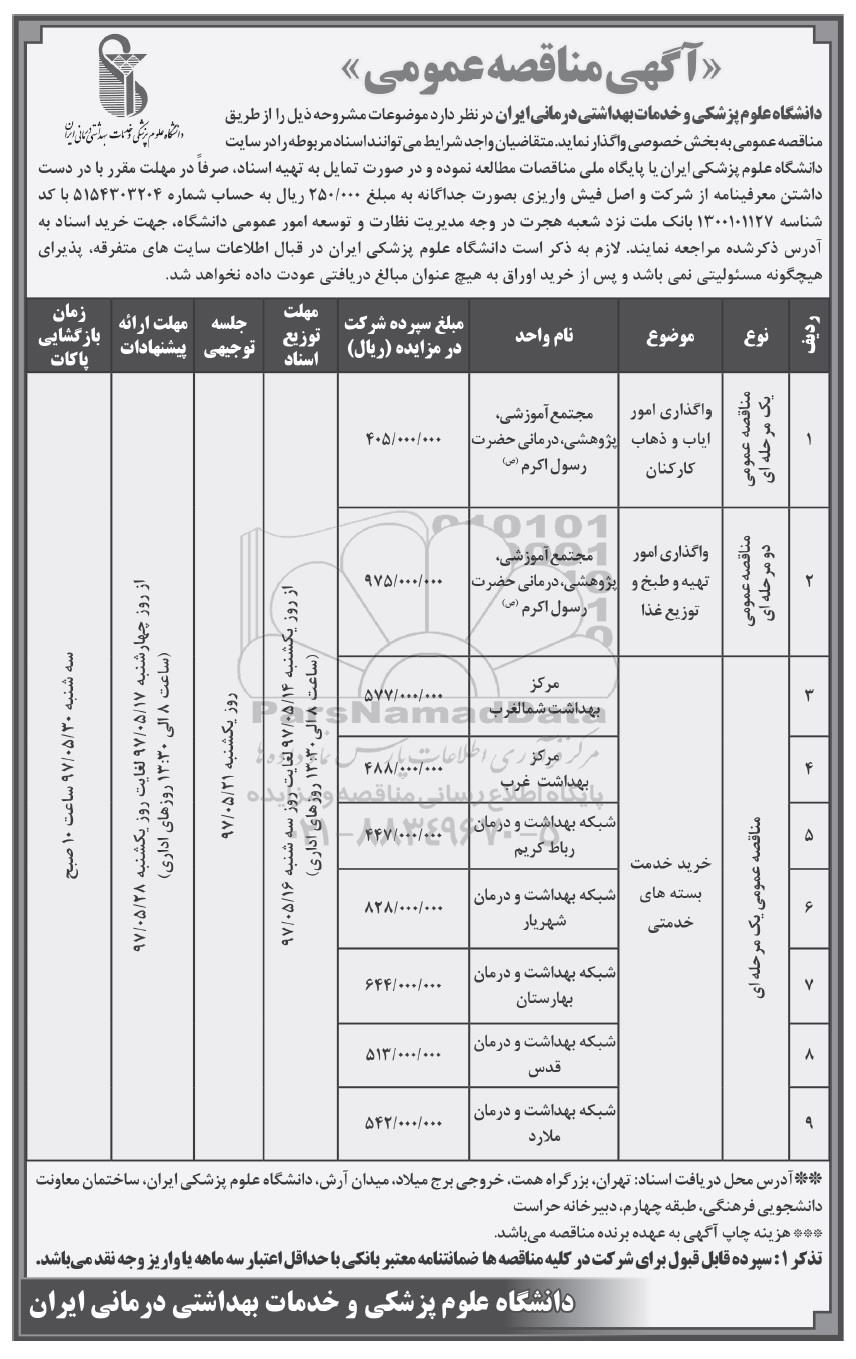 «آگهی مناقصه عمومی»
دانشگاه علوم پزشکی و خدمات بهداشتی درمانی ایران
دانشگاه علوم پزشکی و خدمات بهداشتی درمانی ایران در نظر دارد موضوعات مشروحه ذیل را از طریق
مناقصه عمومی به بخش خصوصی واگذار نماید. متقاضیان واجد شرایط می‌توانند اسناد مربوطه را در سایت
دانشگاه علوم پزشکی ایران یا پایگاه ملی مناقصات مطالعه نموده و در صورت تمایل به تهیه اسناد، صرفاً در مهلت مقرر با در دست
داشتن معرفینامه از شرکت و اصل فیش واریزی بصورت جداگانه به مبلغ ۲۵۰/۰۰۰ ریال به حساب شماره ۵۱۵۴۳۰۳۲۰۴ با کد
شناسه ۱۳۰۰۱۰۱۱۲۷ بانک ملت نزد شعبه هجرت در وجه مدیریت نظارت و توسعه امور عمومی دانشگاه، جهت خرید اسناد به
آدرس ذکرشده مراجعه نمایند. لازم به ذکر است دانشگاه علوم پزشکی ایران در قبال اطلاعات سایت های متفرقه، پذیرای
هیچگونه مسئولیتی نمی باشد و پس از خرید اوراق به هیچ عنوان مبالغ دریافتی عودت داده نخواهد شد.
ردیف
نوع
موضوع
نام واحد
مبلغ سپرده شرکت
در مزایده (ریال)
مهلت
توزیع
اسناد
جلسه
توجیهی
مهلت ارائه
پیشنهادات
زمان
بازگشایی
پاکات
۱
مناقصه عمومی
یک مرحله ای
واگذاری امور
ایاب و ذهاب
کارکنان
مجتمع آموزشی،
پژوهشی، درمانی حضرت
رسول اکرم (ص)
۴۰۵/۰۰۰/۰۰۰
۲
مناقصه عمومی
دو مرحله ای
واگذاری امور
تهیه و طبخ و
توزیع غذا
مجتمع آموزشی،
پژوهشی، درمانی حضرت
رسول اکرم (ص)
۹۷۵/۰۰۰/۰۰۰
مناقصه عمومی یک مرحله ای
خرید خدمت
بسته های
خدمتی
۳
مرکز
بهداشت شمالغرب
۵۷۷/۰۰۰/۰۰۰
۴
مرکز
بهداشت غرب
۴۸۸/۰۰۰/۰۰۰
۵
شبکه بهداشت و درمان
رباط کریم
۴۴۷/۰۰۰/۰۰۰
۶
شبکه بهداشت و درمان
شهریار
۸۲۸/۰۰۰/۰۰۰
۷
شبکه بهداشت و درمان
بهارستان
۶۴۴/۰۰۰/۰۰۰
۸
شبکه بهداشت و درمان
قدس
۵۱۳/۰۰۰/۰۰۰
۹
شبکه بهداشت و درمان
ملارد
۵۴۲/۰۰۰/۰۰۰
از روز یکشنبه ۹۷/۰۵/۱۴ لغایت روز سه شنبه ۹۷/۰۵/۱۶
(ساعت ۸ الی ۱۳:۳۰ روزهای اداری)
روز یکشنبه ۹۷/۰۵/۲۱
از روز چهارشنبه ۹۷/۰۵/۱۷ لغایت روز یکشنبه ۹۷/۰۵/۲۸
(ساعت ۸ الی ۱۳:۳۰ روزهای اداری)
سه شنبه ۹۷/۰۵/۳۰ ساعت ۱۰ صبح
ParsNamadData
مرکز فرآوری اطلاعات پارس نماد داده ها
پایگاه اطلاع رسانی مناقصه و مزایده
۰۲۱-۸۸۳۴۹۶۷۰-۵
** آدرس محل دریافت اسناد: تهران، بزرگراه همت، خروجی برج میلاد، میدان آرش، دانشگاه علوم پزشکی ایران، ساختمان معاونت
دانشجویی فرهنگی، طبقه چهارم، دبیرخانه حراست
*** هزینه چاپ آگهی به عهده برنده مناقصه می‌باشد.
تذکر ۱: سپرده قابل قبول برای شرکت در کلیه مناقصه ها ضمانتنامه معتبر بانکی با حداقل اعتبار سه ماهه یا واریز وجه نقد می‌باشد.
دانشگاه علوم پزشکی و خدمات بهداشتی درمانی ایران